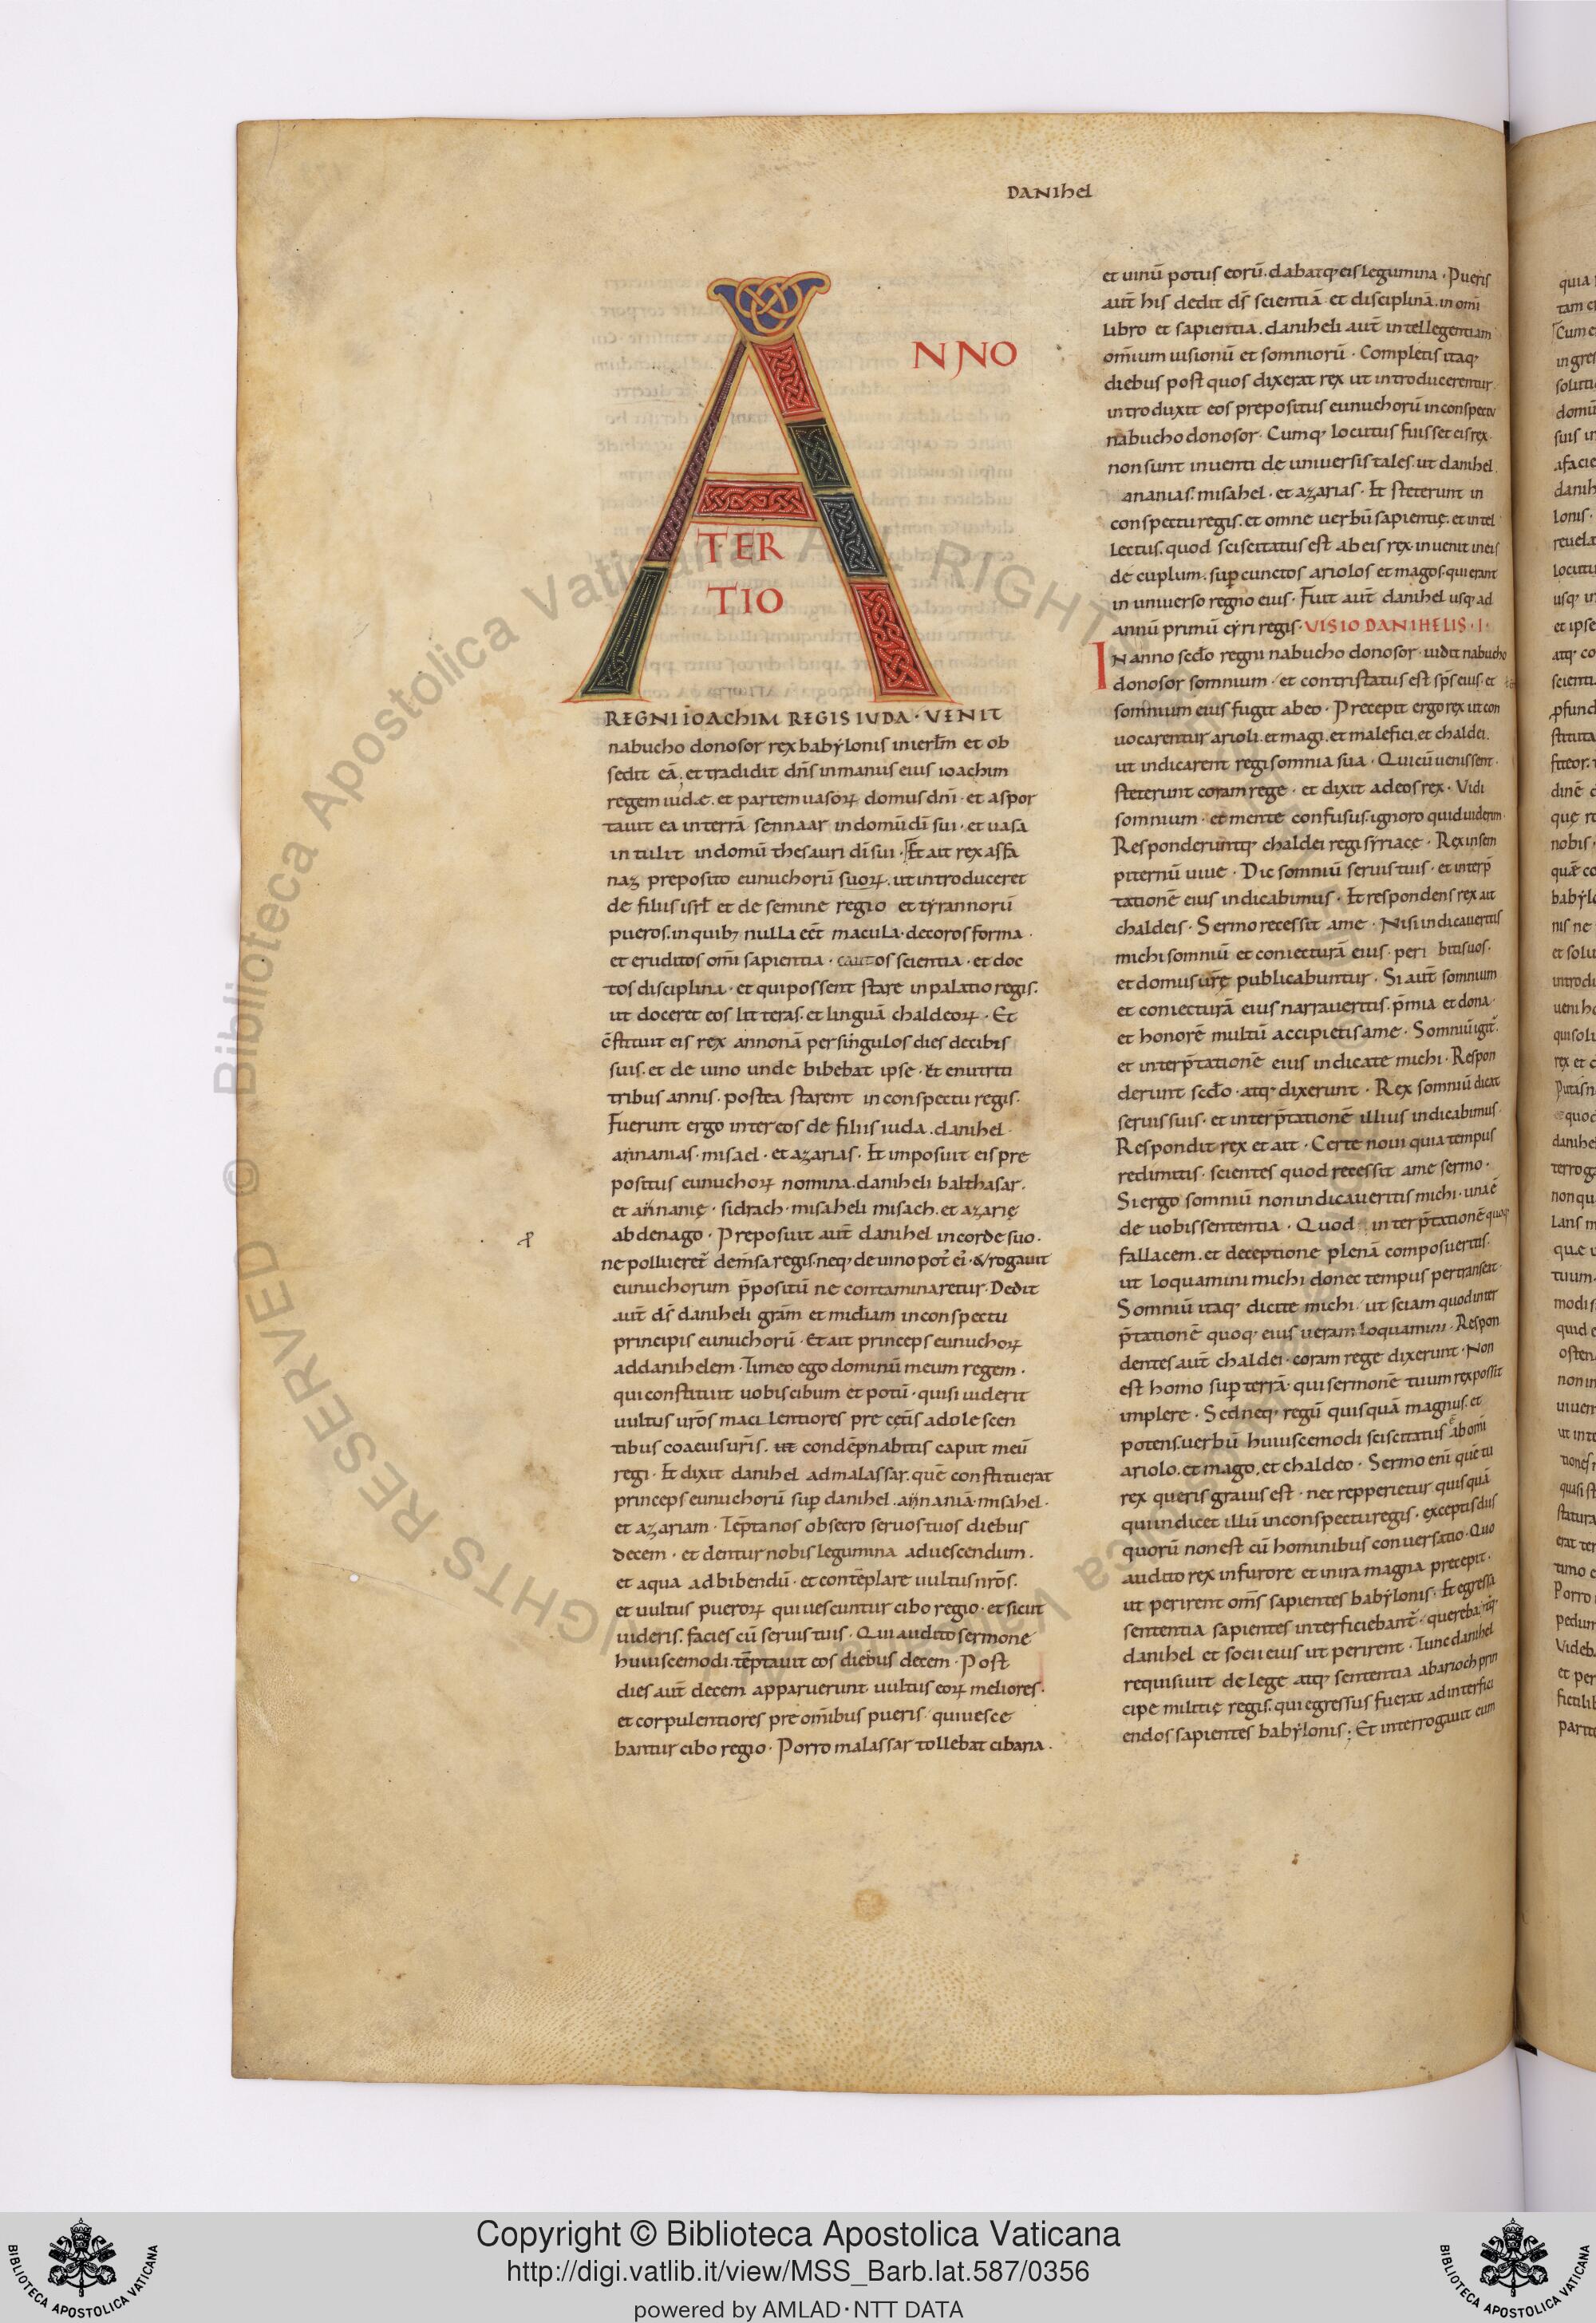 DANIhel
A NNO
TER
TIO
REGNI IOAChIM REGIS IVDA · VENIT
nabucho donosor rex babẏlonis inierl̄m et ob
sedit eā. et tradidit dn̄s inmanus eius ioachim
regem iudæ. et partem uasoꝝ domus dn̄i · et aspor
tauit ea interrā sennaar indomū dī sui · et uasa
intulit indomū thesauri dī sui · Et ait rex asfa
naz preposito eunuchorū suoꝝ. ut introduceret
de filiis isrl̄ et de semine regio et tẏrannorū
pueros. inquibꝫ nulla eēt macula · decoros forma ·
et eruditos om̄i sapientia · cautos scientia · et doc
tos disciplina · et quipossent stare inpalatio regis.
ut doceret eos litteras. et linguā chaldeoꝝ · Et
c̄stituit eis rex annonā persingulos dies decibis
suis. et de uino unde bibebat ipse · Et enutriti
tribus annis. postea starent inconspectu regis.
Fuerunt ergo intereos de filiis iuda. danihel ·
annanias · misael · et azarias · Et imposuit eis pre
positus eunuchoꝝ nomina. daniheli balthasar.
et annanię · sidrach · misaheli misach. et azarię
abdenago · Preposuit aut̄ danihel incorde suo.
ne pollueret̄ dem̄sa regis. neqꝫ de uino pot̄ ei · & rogauit
eunuchorum p̄positū ne contaminaretur · Dedit
aut̄ ds̄ daniheli grām et mīdiam inconspectu
principis eunuchorū · Et ait princeps eunuchoꝝ
addanihelem · Timeo ego dominū meum regem ·
qui constituit uobis cibum et potū · quisi uiderit
uultus ur̄os macilentiores pre cet̄is adolescen
tibus coaeuis ur̄is. condēpnabitis caput meū
regi · Et dixit danihel admalassar. quē constituerat
princeps eunuchorū suꝑ danihel. annaniā · misahel ·
et azariam · Tēpta nos obsecro seruos tuos diebus
decem · et dentur nobis legumina aduescendum.
et aqua adbibendū · et contēplare uultus nr̄os.
et uultus pueroꝝ qui uescuntur cibo regio · et sicut
uideris. facies cū seruis tuis · Qui audito sermone
huiuscemodi. tēptauit eos diebus decem · Post
dies aut̄ decem apparuerunt uultus eoꝝ meliores ·
et corpulentiores pre om̄ibus pueris qui uesce
bantur cibo regio · Porro malassar tollebat cibaria ·
et uinū potus eorū. dabatqꝫ eis legumina · Pueris
aut̄ his dedit ds̄ scientiā et disciplinā. in om̄i
libro et sapientia. daniheli aut̄ intellegentiam
om̄ium uisionū et somniorū · Completis itaqꝫ
diebus post quos dixerat rex ut introducerentur.
introduxit eos prepositus eunuchorū inconspectu
nabucho donosor · Cumqꝫ locutus fuisset eis rex.
non sunt inuenti de uniuersis tales. ut danihel.
ananias. misahel · et azarias · Et steterunt in
conspectu regis. et omne uerbū sapientię. et intel
lectus. quod sciscitatus est abeis rex. inuenit ineis
decuplum. suꝑ cunctos ariolos et magos. qui erant
in uniuerso regno eius · Fuit aut̄ danihel usqꝫ ad
annū primū cẏri regis · VISIO DANIHELIS · I ·
IN anno sc̄do regni nabucho donosor · uidit nabucho
donosor somnium · et contristatus est sp̄s eius. et
somnium eius fugit abeo · Precepit ergo rex ut con
uocarentur arioli. et magi. et malefici. et chaldei.
ut indicarent regi somnia sua · Qui cū uenissent.
steterunt coram rege · et dixit adeos rex · Vidi
somnium · et mente confusus. ignoro quid uiderim.
Responderuntqꝫ chaldei regi sẏriace · Rex insem
piternū uiue · Dic somniū seruis tuis · et interp̄
tationē eius indicabimus · Et respondens rex ait
chaldeis · Sermo recessit ame · Nisi indicaueritis
michi somniū et coniecturā eius · peri bitis uos.
et domus ur̄ę publicabuntur · Si aut̄ somnium
et coniecturā eius narraueritis. p̄mia et dona.
et honorē multū accipietis ame · Somniū igit̄.
et interp̄tationē eius indicate michi · Respon
derunt sc̄do. atqꝫ dixerunt · Rex somniū dicat
seruis suis · et interp̄tationē illius indicabimus.
Respondit rex et ait · Certe noui quia tempus
redimitis · scientes quod recessit ame sermo.
Si ergo somniū non indicaueritis michi · una ē
de uobis sententia · Quod interp̄tationē quoqꝫ
fallacem. et deceptione plenā composueritis.
ut loquamini michi donec tempus pertranseat.
Somniū itaqꝫ dicite michi. ut sciam quod inter
p̄tationē quoqꝫ eius ueram loquamini. Respon
dentes aut̄ chaldei · coram rege dixerunt · Non
est homo suꝑ terrā · qui sermonē tuum rex possit
implere · Sed neqꝫ regū quisquā magnus. et
potens. uerbū huiuscemodi sciscitatus ē ab om̄i
ariolo. et mago. et chaldeo · Sermo eni quē tu
rex queris grauis est · nec repperietur quisquā
qui indicet illū inconspectu regis. exceptis diis
quorū non est cū hominibus conuersatio · Quo
audito rex infurore et inira magna precepit.
ut perirent om̄s sapientes babẏlonis. Et egressa
sententia sapientes interficiebant̄ · querebat̄qꝫ
danihel et socii eius ut perirent · Tunc danihel
requisiuit delege atqꝫ sententia abarioch prin
cipe militię regis. qui egressus fuerat ad interfici
endos sapientes babẏlonis · Et interrogauit eum
© Biblioteca Apostolica Vaticana ALL RIGHTS RESERVED
Copyright © Biblioteca Apostolica Vaticana
http://digi.vatlib.it/view/MSS_Barb.lat.587/0356
powered by AMLAD·NTT DATA
BIBLIOTECA APOSTOLICA VATICANA
BIBLIOTECA APOSTOLICA VATICANA